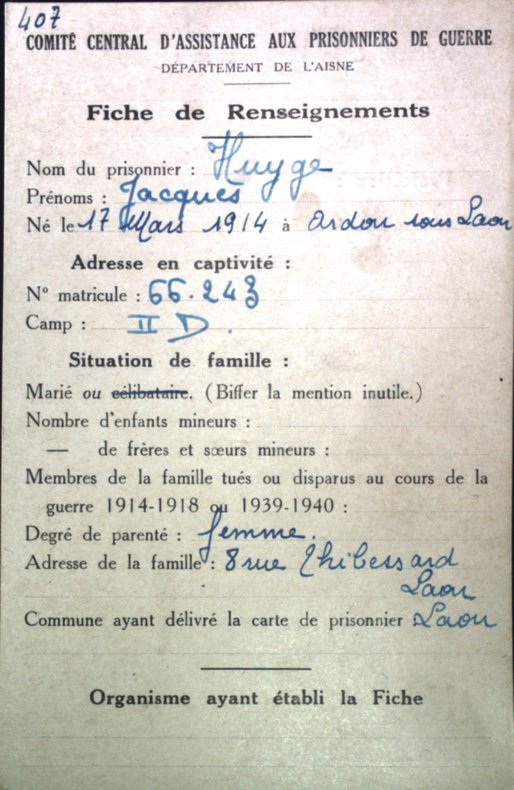 407
COMITÉ CENTRAL D'ASSISTANCE AUX PRISONNIERS DE GUERRE
DÉPARTEMENT DE L'AISNE
Fiche de Renseignements
Nom du prisonnier : Huyge
Prénoms : Jacques
Né le 17 Mars 1914 à Ardon sous Laon
Adresse en captivité :
N° matricule : 66.243
Camp : II D.
Situation de famille :
Marié ou célibataire. (Biffer la mention inutile.)
Nombre d'enfants mineurs :
— de frères et sœurs mineurs :
Membres de la famille tués ou disparus au cours de la
guerre 1914-1918 ou 1939-1940 :
Degré de parenté : femme.
Adresse de la famille : 8 rue Thibessard
Laon
Commune ayant délivré la carte de prisonnier : Laon
Organisme ayant établi la Fiche